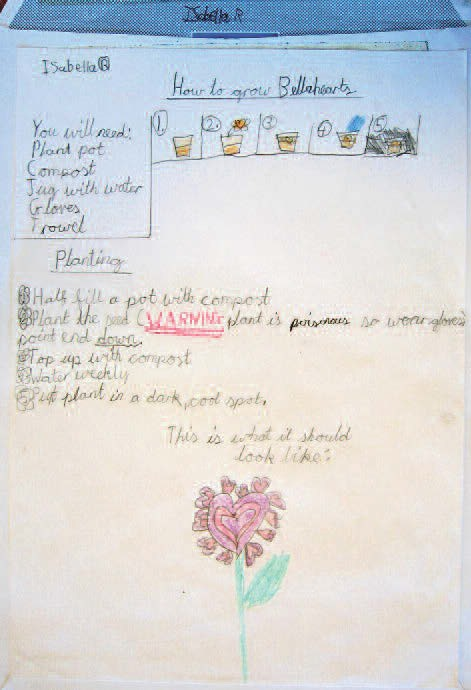 Isabella R
Isabella R
How to grow Bellahearts
You will need:
Plant pot
Compost
Jug with water
Gloves
Trowel
1 2. 3 4 5.
Planting
1 Half fill a pot with compost
2 Plant the seed (WARNING plant is poisonous so wear gloves
point end down.
3 Top up with compost
4 Water weekly
5 Put plant in a dark, cool spot.
This is what it should
look like: